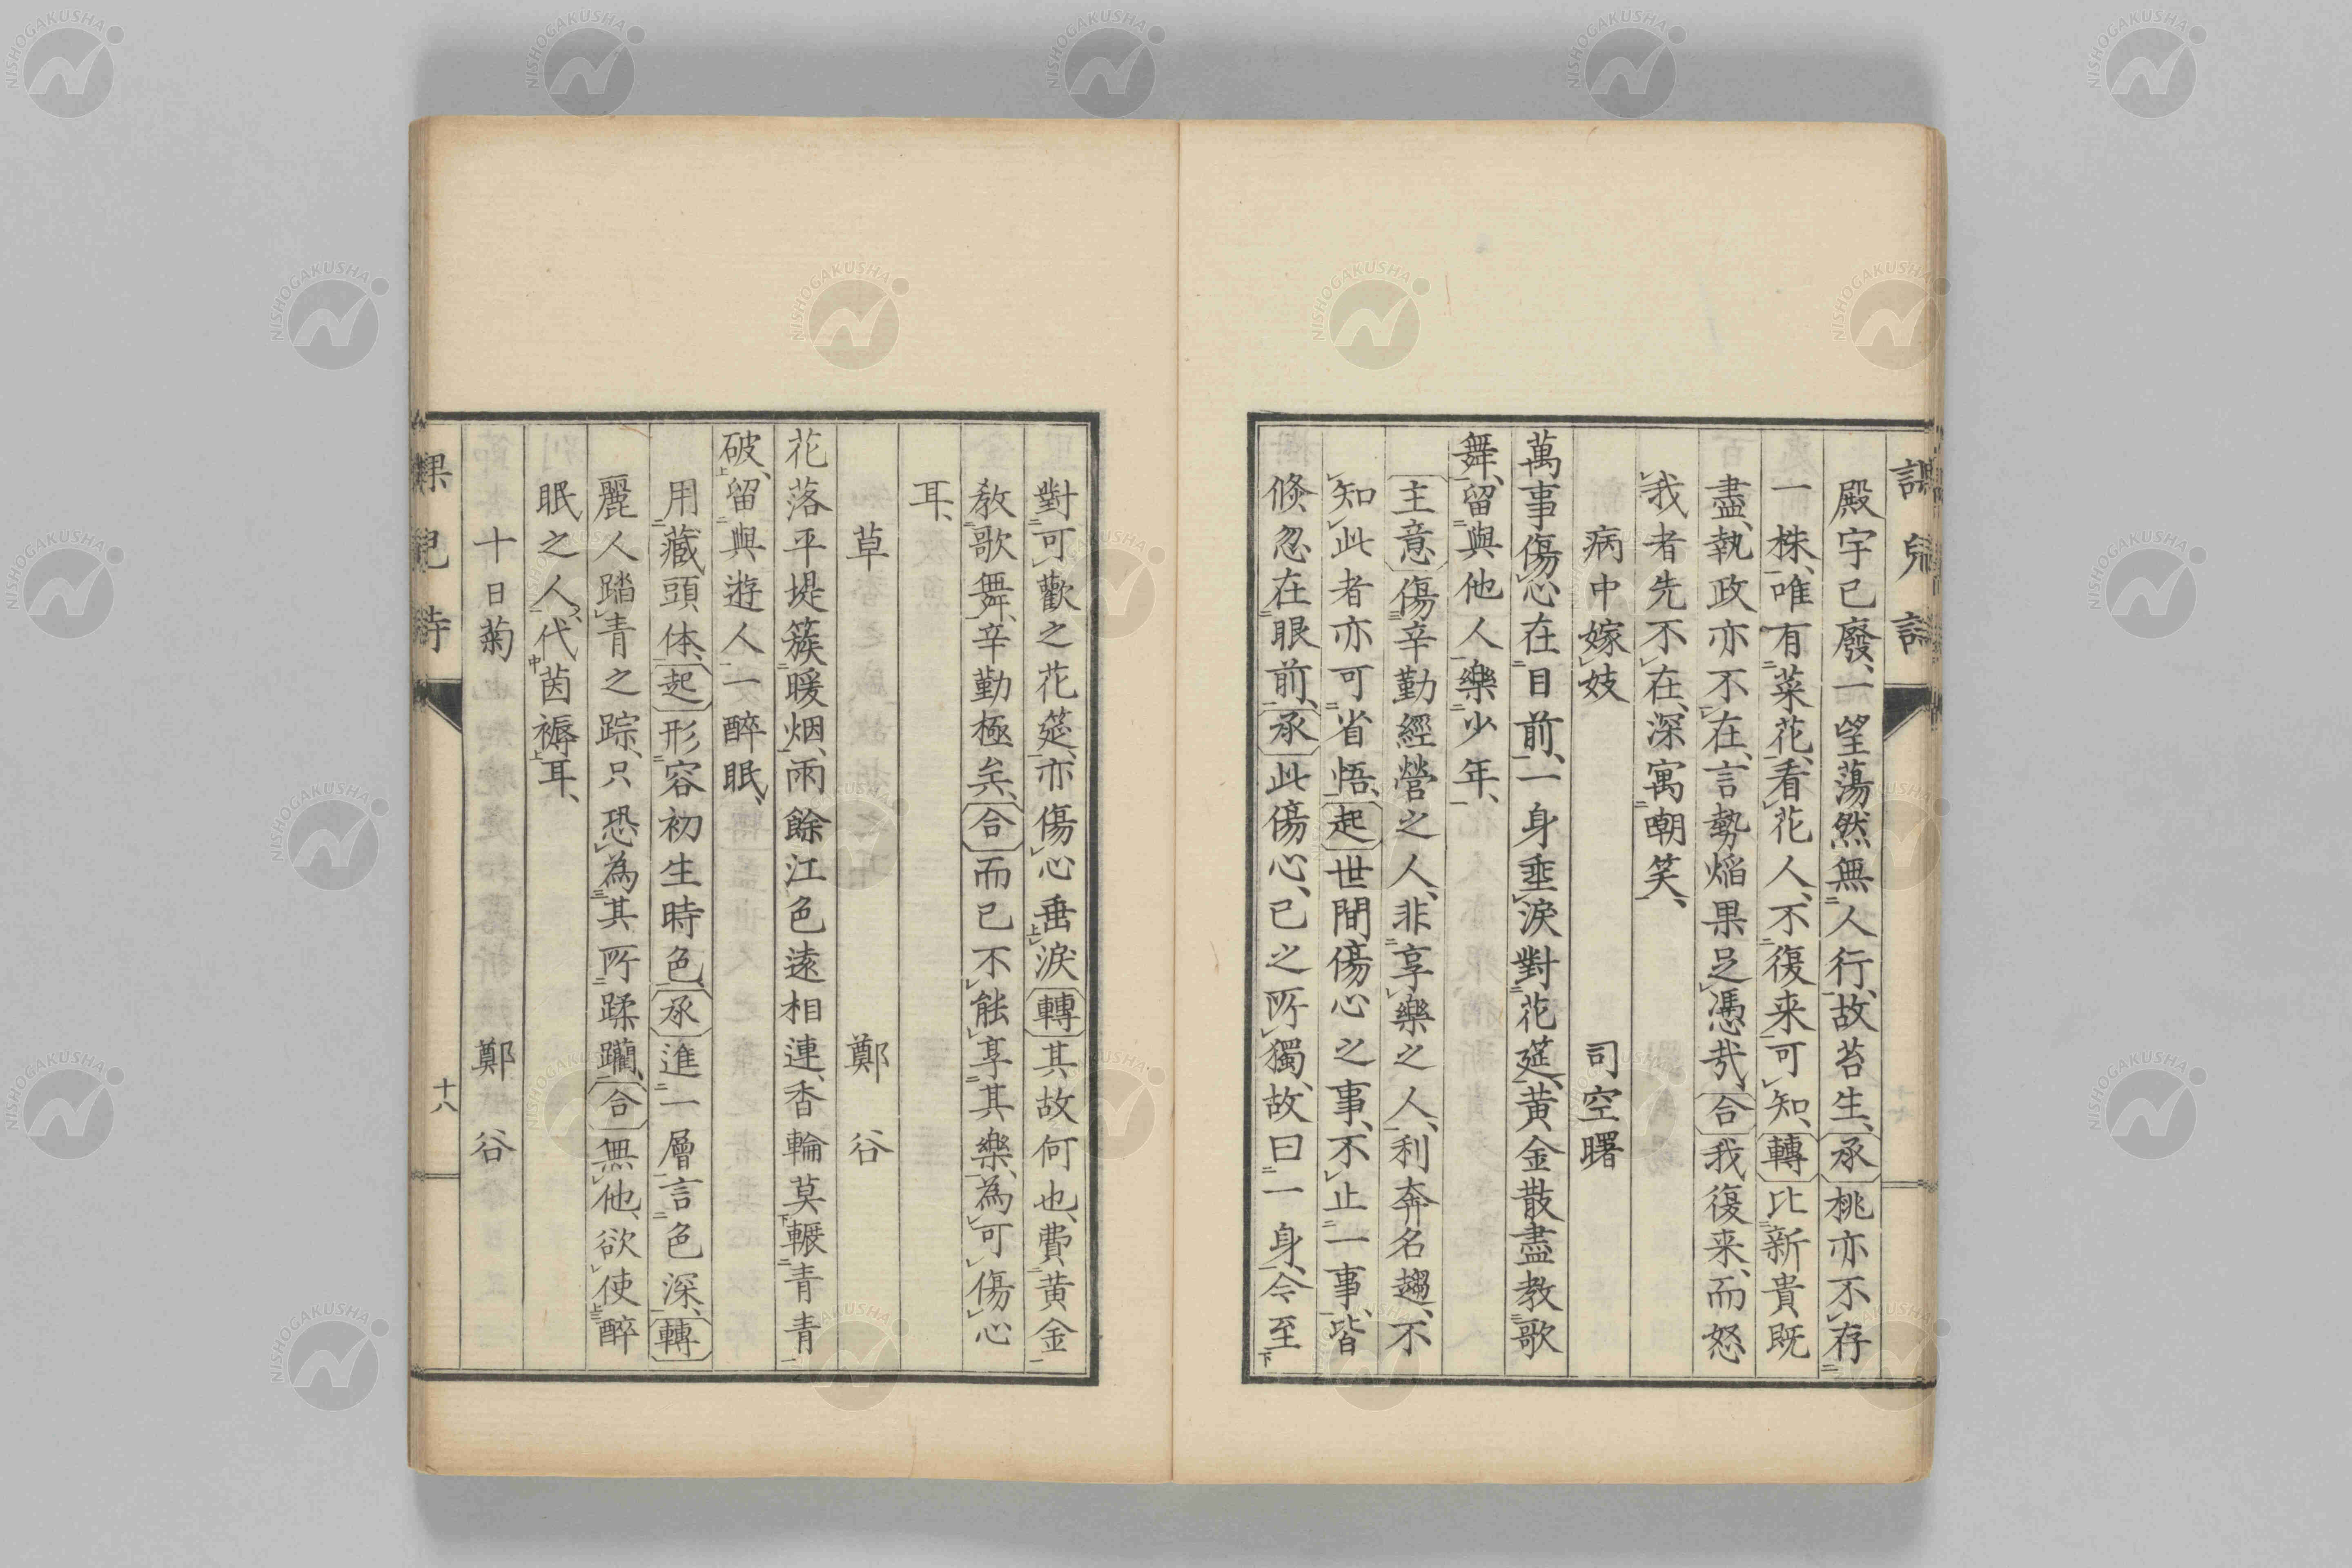 殿宇已廢、一望蕩然無人行、故苔生、承桃亦不存
一株、唯有菜花、看花人、不復来可知、轉比新貴既
盡、執政亦不在、言勢焔果足憑哉、合我復来、而怒
我者先不在、深寓嘲笑、
病中嫁妓　司空曙
萬事傷心在目前、一身垂淚對花筵、黄金散盡教歌
舞、留與他人樂少年、
主意傷辛勤經營之人、非享樂之人、利奔名趨、不
知此者亦可省悟、起世間傷心之事、不止一事、皆
倏忽在眼前、承此傷心、已之所獨、故曰一身、今至
對可歡之花筵、亦傷心垂淚轉其故何也、費黄金
教歌舞、辛勤極矣、合而已不能享其樂、為可傷心
耳、
草　鄭谷
花落平堤簇暖烟、雨餘江色遠相連、香輪莫輾青青
破、留與遊人一醉眠、
用藏頭体、起形容初生時色、承進一層言色深、轉
麗人踏青之踪、只恐為其所蹂躪、合無他、欲使醉
眠之人、代茵褥耳、
十日菊　鄭谷
十八